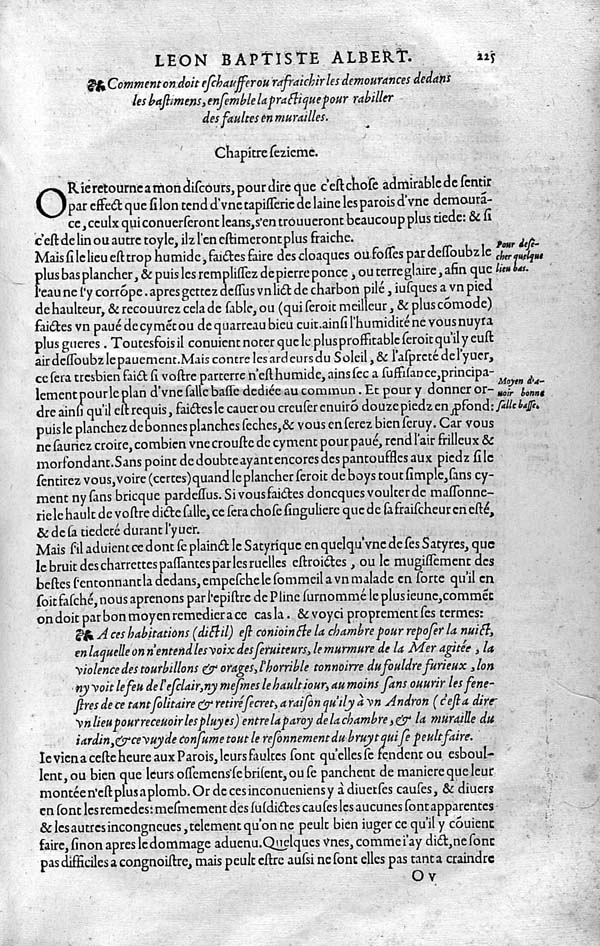 LEON BAPTISTE ALBERT. 225
Comment on doit eſchauffer ou rafraichir les demourances dedans
les baſtimens, enſemble la practique pour rabiller
des faultes en murailles.
Chapitre ſezieme.
ORie retourne a mon diſcours, pour dire que c'eſt choſe admirable de ſentir
par effect que ſi lon tend d'vne tapiſſerie de laine les parois d'vne demourā-
ce, ceulx qui conuerſeront leans, s'en trouueront beaucoup plus tiede: & ſi
c'eſt de lin ou autre toyle, ilz l'en eſtimeront plus fraiche.
Mais ſi le lieu eſt trop humide, faictes faire des cloaques ou foſſes par deſſoubz le
Pour deſe-
cher quelque
lieu bas.
plus bas plancher, & puis les rempliſſez de pierre ponce, ou terre glaire, afin que
l'eau ne ſ'y corrōpe. apres gettez deſſus vn lict de charbon pilé, iuſques a vn pied
de haulteur, & recouurez cela de ſable, ou (qui ſeroit meilleur, & plus cōmode)
faictes vn paué de cymēt ou de quarreau bieu cuit. ainſi l'humidité ne vous nuyra
plus gueres. Touteſfois il conuient noter que le plus proffitable ſeroit qu'il y euſt
air deſſoubz le pauement. Mais contre les ardeurs du Soleil, & l'aſpreté de l'yuer,
ce ſera tresbien faict ſi voſtre parterre n'eſt humide, ains ſec a ſuffiſance, principa-
lement pour le plan d'vne ſalle baſſe dediée au commun. Et pour y donner or-
Moyen d'a-
uoir bonne
ſalle baſſe.
dre ainſi qu'il eſt requis, faictes le cauer ou creuſer enuirō douze piedz en ꝓfond:
puis le planchez de bonnes planches ſeches, & vous en ſerez bien ſeruy. Car vous
ne ſauriez croire, combien vne crouſte de cyment pour paué, rend l'air frilleux &
morfondant. Sans point de doubte ayant encores des pantouffles aux piedz ſi le
ſentirez vous, voire (certes) quand le plancher ſeroit de boys tout ſimple, ſans cy-
ment ny ſans bricque pardeſſus. Si vous faictes doncques voulter de maſſonne-
rie le hault de voſtre dicte ſalle, ce ſera choſe ſinguliere que de ſa fraiſcheur en eſté,
& de ſa tiedeté durant l'yuer.
Mais ſ'il aduient ce dont ſe plainct le Satyrique en quelqu'vne de ſes Satyres, que
le bruit des charrettes paſſantes par les ruelles eſtroictes, ou le mugiſſement des
beſtes ſ'entonnant la dedans, empeſche le ſommeil a vn malade en ſorte qu'il en
ſoit faſché, nous aprenons par l'epiſtre de Pline ſurnommé le plus ieune, commēt
on doit par bon moyen remedier a ce cas la. & voycy proprement ſes termes:
A ces habitations (dict il) eſt conioincte la chambre pour repoſer la nuict,
en laquelle on n'entend les voix des ſeruiteurs, le murmure de la Mer agitée, la
violence des tourbillons & orages, l'horrible tonnoirre du fouldre furieux, lon
ny voit le feu de l'eſclair, ny meſmes le hault iour, au moins ſans ouurir les fene-
ſtres de ce tant ſolitaire & retiré ſecret, a raiſon qu'il y à vn Andron (c'eſt a dire
vn lieu pour receuoir les pluyes) entre la paroy de la chambre, & la muraille du
iardin, & ce vuyde conſume tout le reſonnement du bruyt qui ſe peult faire.
Ie vien a ceſte heure aux Parois, leurs faultes ſont qu'elles ſe fendent ou esboul-
lent, ou bien que leurs oſſemens ſe briſent, ou ſe panchent de maniere que leur
montée n'eſt plus a plomb. Or de ces inconueniens y à diuerſes cauſes, & diuers
en ſont les remedes: meſmement des ſuſdictes cauſes les aucunes ſont apparentes
& les autres incongneues, telement qu'on ne peult bien iuger ce qu'il y cōuient
faire, ſinon apres le dommage aduenu. Quelques vnes, comme i'ay dict, ne ſont
pas difficiles a congnoiſtre, mais peult eſtre auſſi ne ſont elles pas tant a craindre
O v